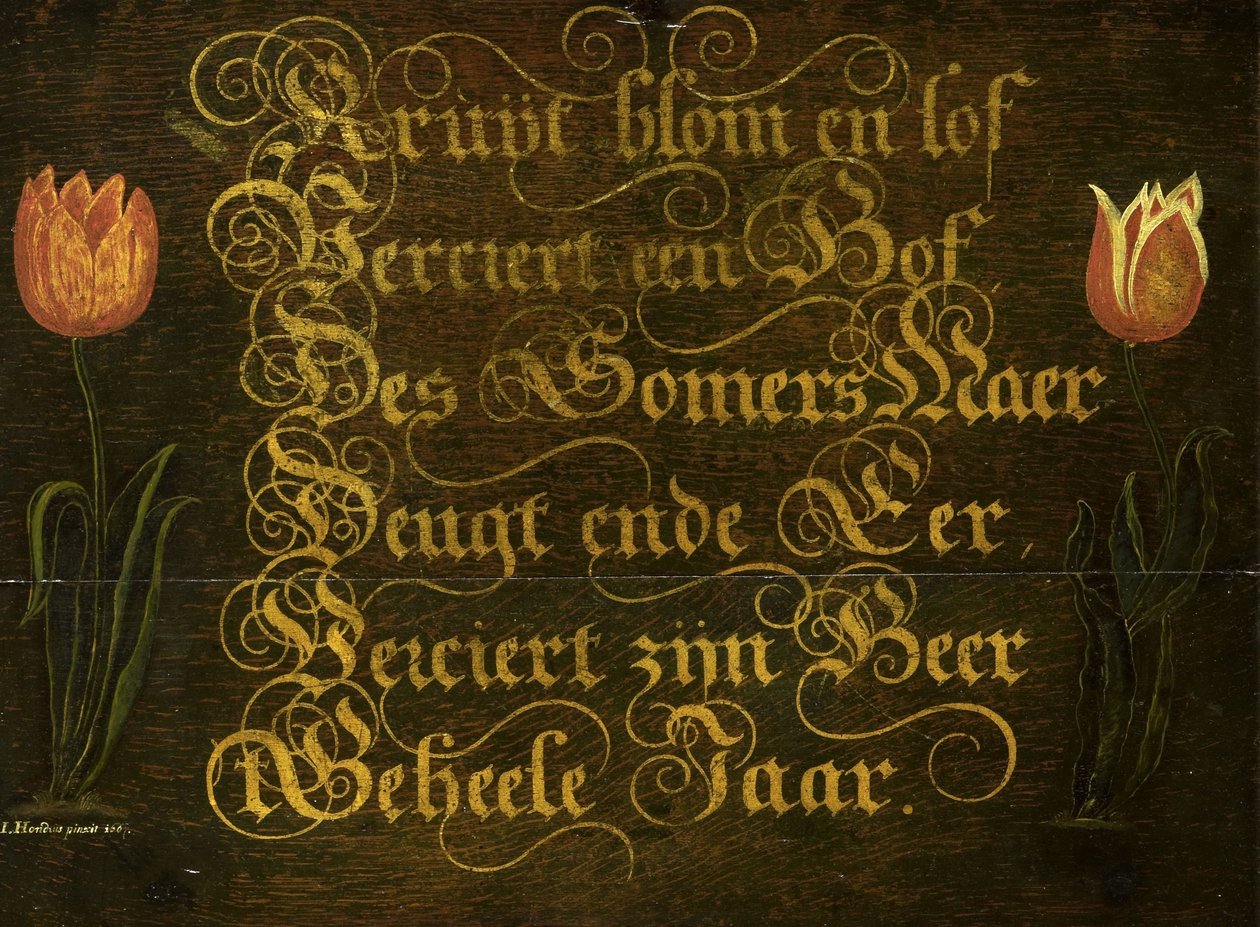 Kruÿt blom en lof
Verciert een Hof
Des Somers Maer
Deugt ende Eer,
Verciert zijn Heer
tGeheele Jaar.
I. Hondius pinxit